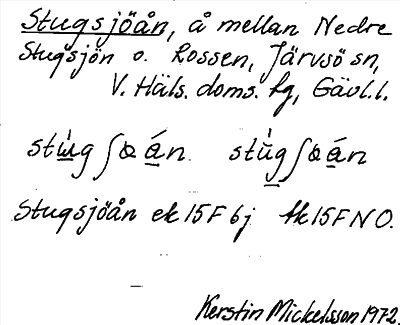 Stugsjöån, å mellan Nedre
Stugsjön o. Rossen, Järvsö sn,
V. Häls. doms. fg, Gävl.l.
Stugsjöån ek 15F 6j tk 15F NO.
Kerstin Mickelsson 1972.